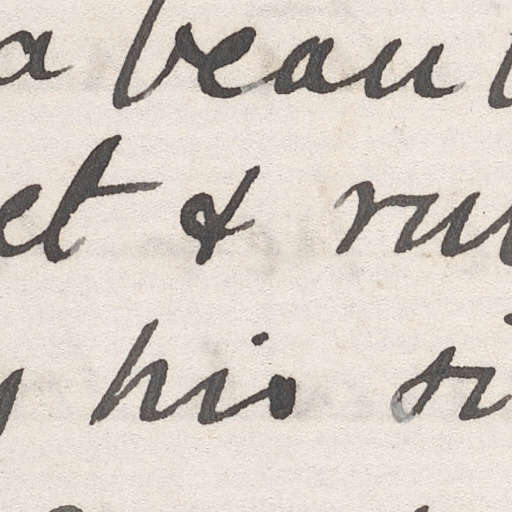 a beau
et & ru
his si